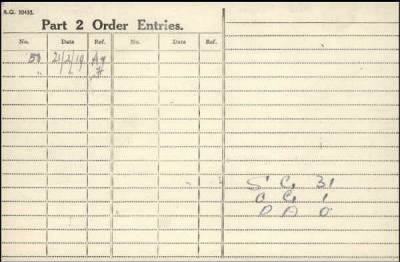 A.G. 10455.
Part 2 Order Entries.
No. Date Ref. No. Date Ref.
58 21/2/19 Ag
" H
S G 31
C G 1
D A 0